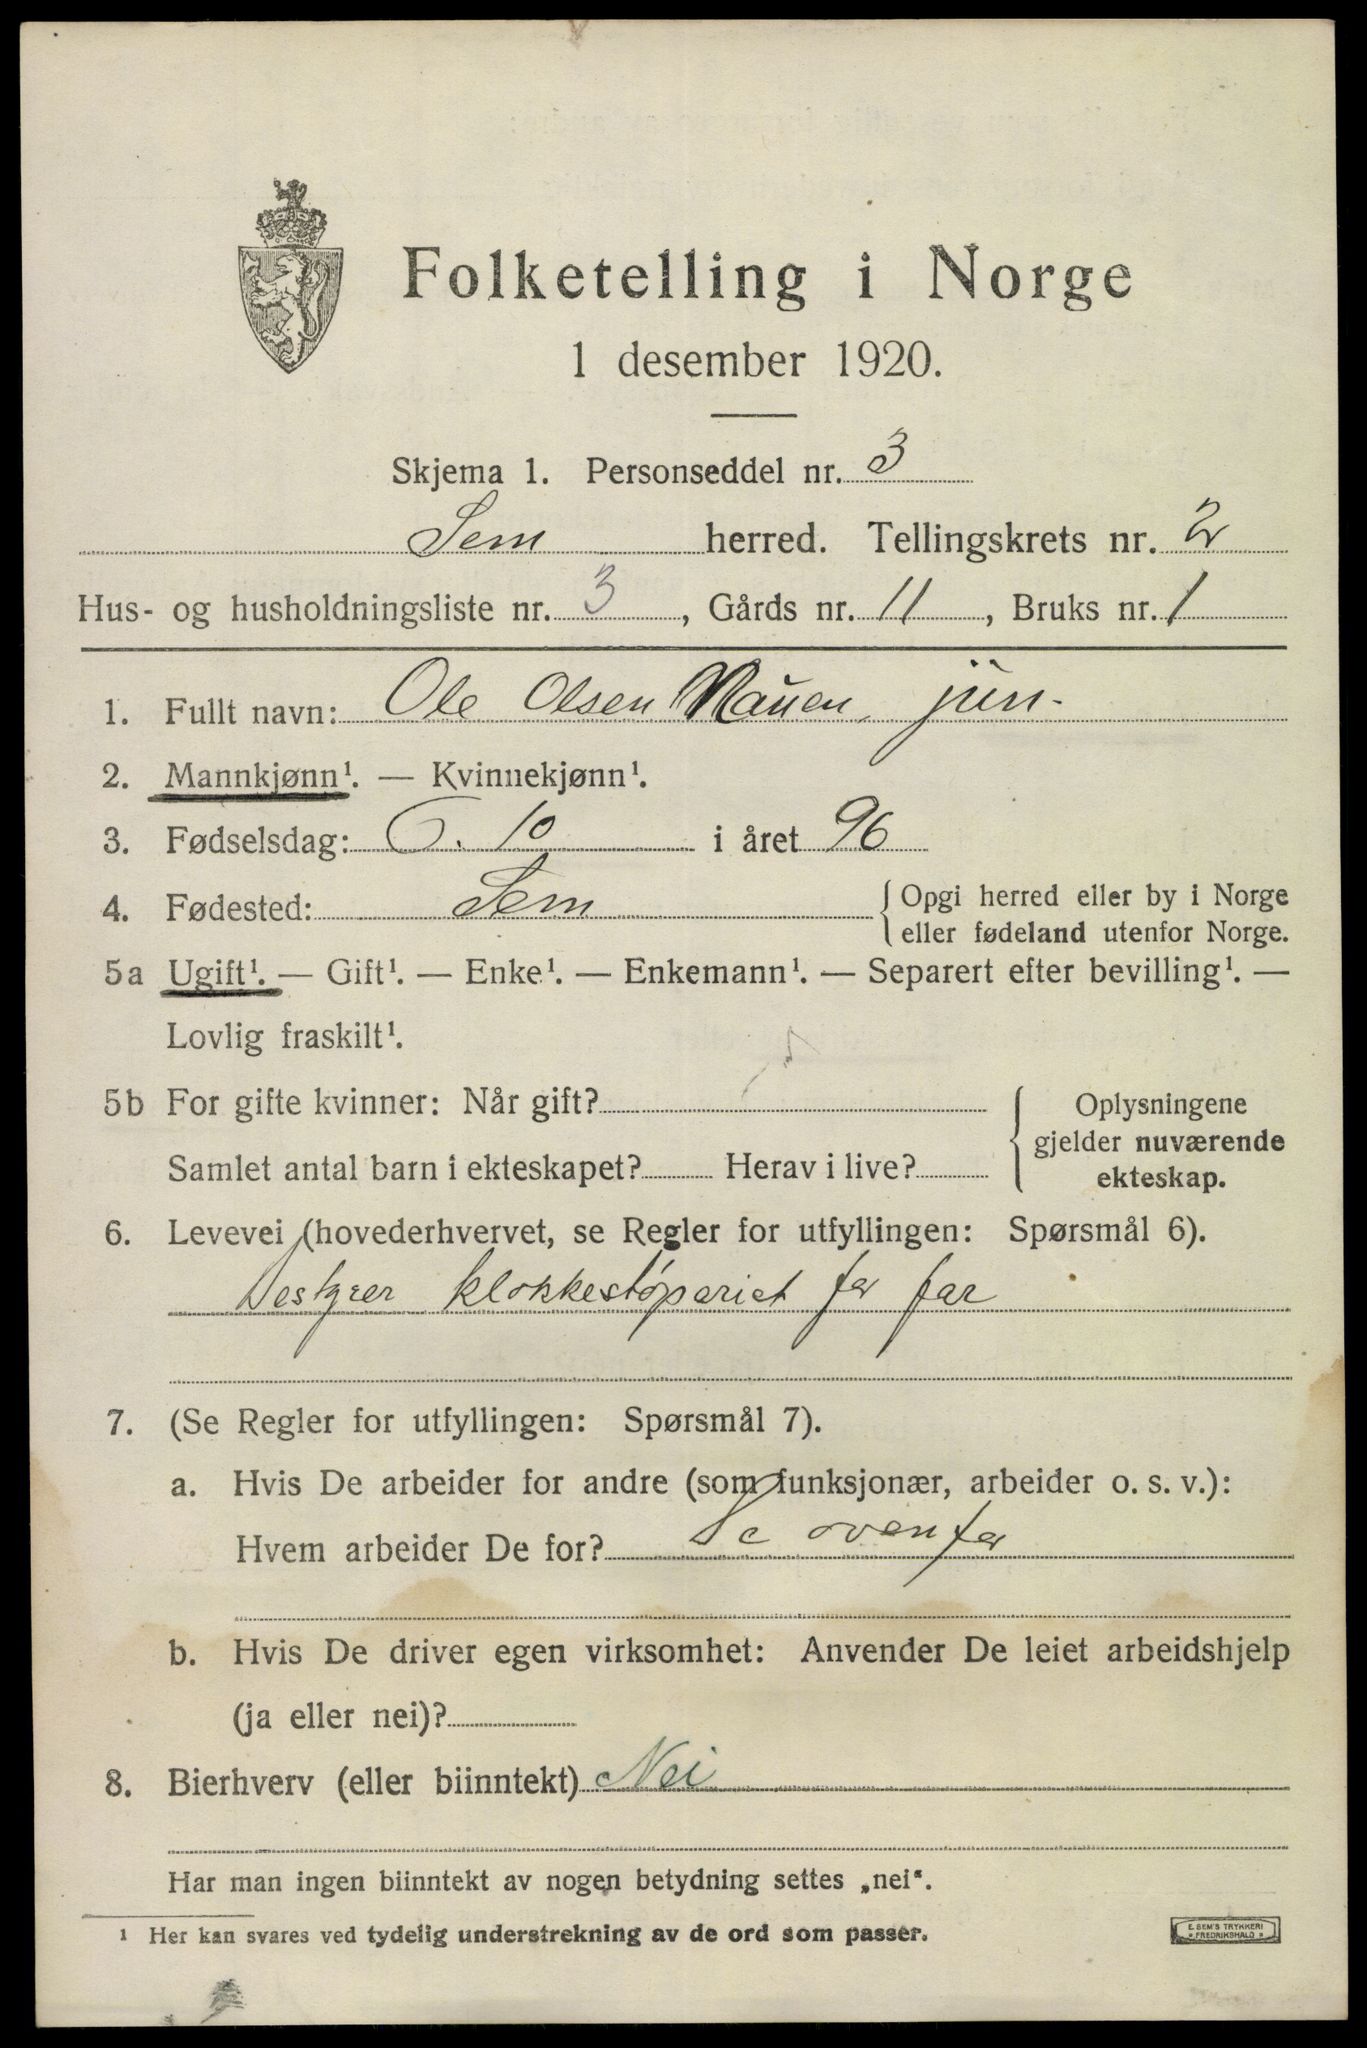 Folketelling i Norge
1 desember 1920.
Skjema 1. Personseddel nr. 3
Sem herred. Tellingskrets nr. 2
Hus- og husholdningsliste nr. 3, Gårds nr. 11, Bruks nr. 1
1. Fullt navn: Ole Olsen Nauen, jun.
2. Mannkjønn¹. — Kvinnekjønn¹.
3. Fødselsdag: 6. 10 i året 96
4. Fødested: Sem { Opgi herred eller by i Norge
eller fødeland utenfor Norge.
5a Ugift¹. — Gift¹. — Enke¹. — Enkemann¹. — Separert efter bevilling¹. —
Lovlig fraskilt¹.
5b For gifte kvinner: Når gift?
Samlet antal barn i ekteskapet? Herav i live?
{ Oplysningene
gjelder nuværende
ekteskap.
6. Levevei (hovederhvervet, se Regler for utfyllingen: Spørsmål 6).
Bestyrer klokkestøperiet for far
7. (Se Regler for utfyllingen: Spørsmål 7).
a. Hvis De arbeider for andre (som funksjonær, arbeider o. s. v.):
Hvem arbeider De for? Se ovenfor
b. Hvis De driver egen virksomhet: Anvender De leiet arbeidshjelp
(ja eller nei)?
8. Bierhverv (eller biinntekt) Nei
Har man ingen biinntekt av nogen betydning settes „nei“.
¹ Her kan svares ved tydelig understrekning av de ord som passer.
E. SEM'S TRYKKERI
FREDRIKSHALD